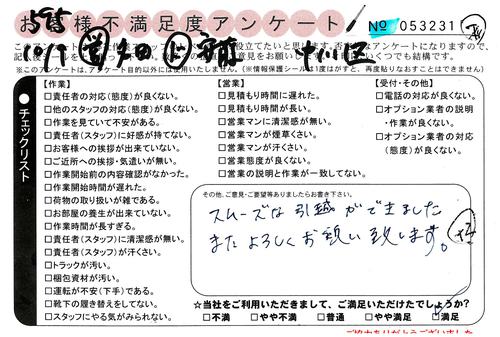 お客様不満足度アンケート！
№ 053231
※このアンケートは、アンケート目的以外には使用いたしません。（※情報保護シールは1度はがすと、再度貼りなおすことはできません）
チェックリスト
【作業】
□責任者の対応（態度）が良くない。
□他のスタッフの対応（態度）が良くない。
□作業を見ていて不安がある。
□責任者（スタッフ）に好感が持てない。
□お客様への挨拶が出来ていない。
□ご近所への挨拶・気遣いが無い。
□作業開始前の内容確認がなかった。
□作業開始時間が遅れた。
□荷物の取り扱いが雑である。
□お部屋の養生が出来ていない。
□作業時間が長すぎる。
□責任者（スタッフ）に清潔感が無い。
□責任者（スタッフ）が汗くさい。
□トラックが汚い。
□梱包資材が汚い。
□運転が不安（下手）である。
□靴下の履き替えをしてない。
□スタッフにやる気がみられない。
【営業】
□見積もり時間に遅れた。
□見積もり時間が長い。
□営業マンに清潔感が無い。
□営業マンが煙草くさい。
□営業マンが汗くさい。
□営業態度が良くない。
□営業の説明と作業が一致してない。
【受付・その他】
□電話の対応が良くない。
□オプション業者の説明・作業が良くない。
□オプション業者の対応（態度）が良くない。
その他、ご意見・ご要望等ありましたらお書き下さい。
スムーズな引越ができました
またよろしくお願い致します。
☆当社をご利用いただきまして、ご満足いただけたでしょうか？
□不満　□やや不満　□普通　□やや満足　□満足
ご協力ありがとうございました